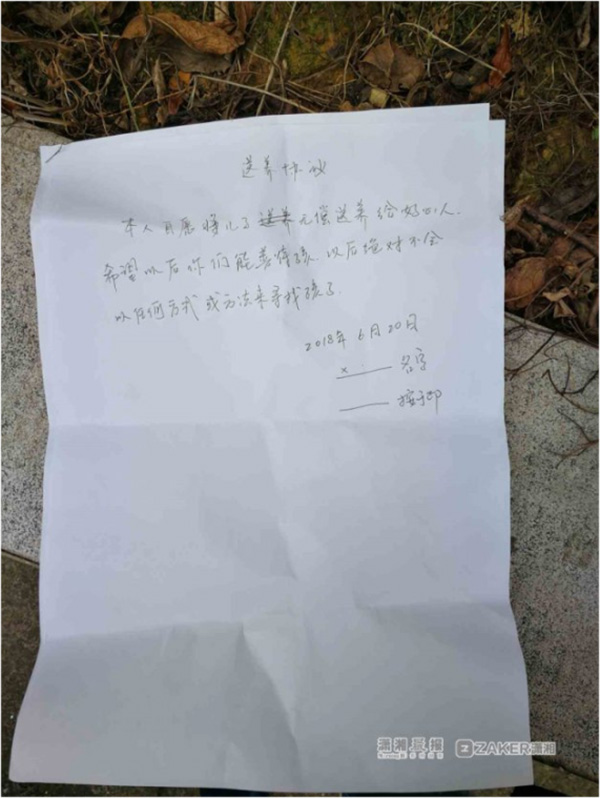 送养协议
本人自愿将儿子送养无偿送养给好心人.
希望以后你们能善待孩. 以后绝对不会
以任何方式或方法来寻找孩子.
2018年6月20日
x. 名字
按手印
潇湘晨报
ZAKER潇湘